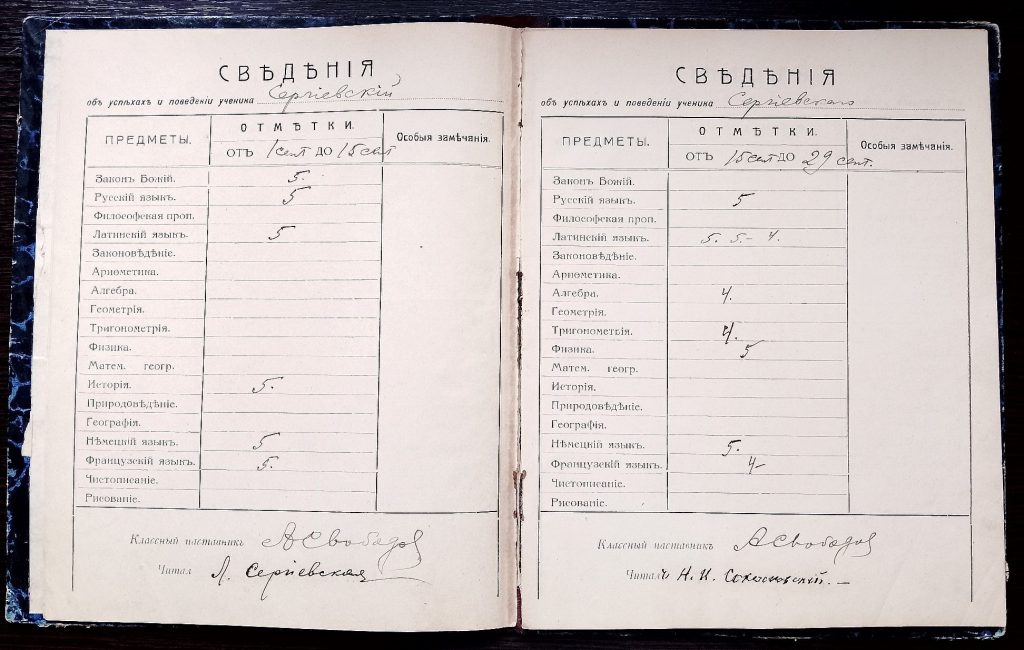 СВѢДѢНІЯ
объ успѣхахъ и поведеніи ученика Сергіевскій
ПРЕДМЕТЫ. ОТМѢТКИ. Особыя замѣчанія.
ОТЪ 1 сент ДО 15 сент
Законъ Божій. 5.
Русскій языкъ. 5
Философская проп.
Латинскій языкъ. 5
Законовѣдѣніе.
Ариѳметика.
Алгебра.
Геометрія.
Тригонометрія.
Физика.
Матем. геогр.
Исторія. 5.
Природовѣдѣніе.
Географія.
Нѣмецкій языкъ. 5
Французскій языкъ. 5.
Чистописаніе.
Рисованіе.
Классный наставникъ АСвободов
Читалъ Л. Сергіевская
СВѢДѢНІЯ
объ успѣхахъ и поведеніи ученика Сергіевскаго
ПРЕДМЕТЫ. ОТМѢТКИ. Особыя замѣчанія.
ОТЪ 15 сент ДО 29 сент.
Законъ Божій.
Русскій языкъ. 5
Философская проп.
Латинскій языкъ. 5. 5- 4.
Законовѣдѣніе.
Ариѳметика.
Алгебра. 4.
Геометрія.
Тригонометрія. 4.
Физика. 5
Матем. геогр.
Исторія.
Природовѣдѣніе.
Географія.
Нѣмецкій языкъ. 5.
Французскій языкъ. 4-
Чистописаніе.
Рисованіе.
Классный наставникъ АСвободов
Читалъ Н. И.